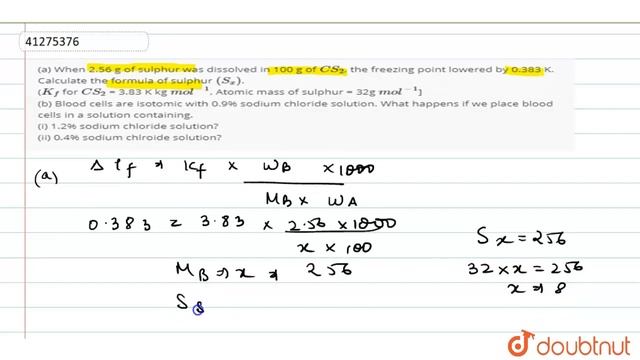 41275376
(a) When 2.56 g of sulphur was dissolved in 100 g of CS₂, the freezing point lowered by 0.383 K.
Calculate the formula of sulphur (Sₓ).
(K_f for CS₂ = 3.83 K kg mol⁻¹. Atomic mass of sulphur = 32g mol⁻¹]
(b) Blood cells are isotomic with 0.9% sodium chloride solution. What happens if we place blood
cells in a solution containing.
(i) 1.2% sodium chloride solution?
(ii) 0.4% sodium chlroide solution?
(a) Δ Tf = Kf × WB × 1000
MB × WA
0.383 = 3.83 × 2.56 × 1000
x × 100
MB ⇒ x = 256
S8
Sx = 256
32 × x = 256
x ⇒ 8
doubtnut